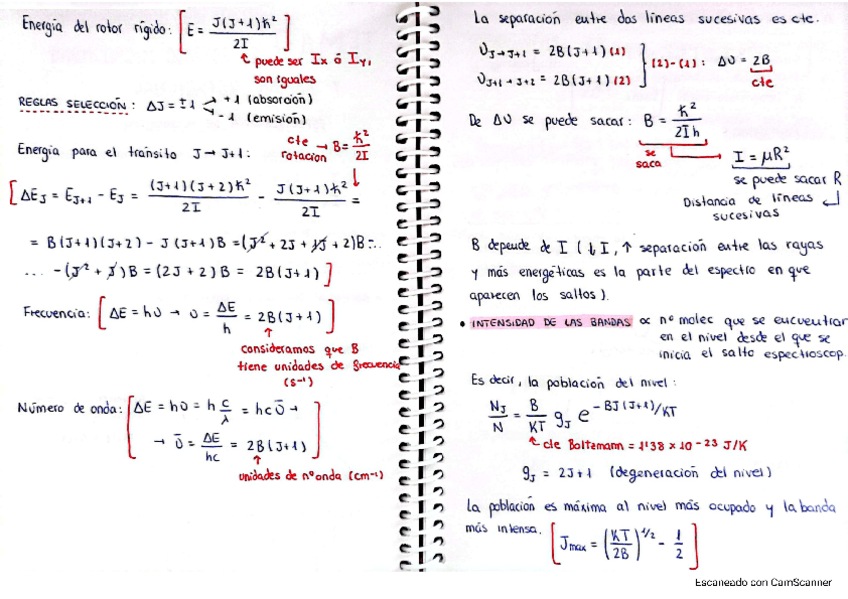 Energía del rotor rígido: [E = J(J+1)ħ² / 2I]
↳ puede ser Ix ó Iy,
son iguales
REGLAS SELECCIÓN: ΔJ = ±1 +1 (absorción)
-1 (emisión)
Energía para el tránsito J → J+1: cte rotacion → B = ħ² / 2I
[ΔE_J = E_J+1 - E_J = (J+1)(J+2)ħ² / 2I - J(J+1)ħ² / 2I =
= B(J+1)(J+2) - J(J+1)B = (J² + 2J + 1J + 2)B - ...
... - (J² + J)B = (2J + 2)B = 2B(J+1)]
Frecuencia: [ΔE = hυ → υ = ΔE / h = 2B(J+1)]
consideramos que B
tiene unidades de frecuencia
(s⁻¹)
Número de onda: [ΔE = hυ = h c / λ = hcῡ →
→ ῡ = ΔE / hc = 2B(J+1)]
unidades de nº onda (cm⁻¹)
La separación entre dos líneas sucesivas es cte.
υ_J→J+1 = 2B(J+1) (1)
υ_J+1→J+2 = 2B(J+1) (2) } (2)-(1): Δυ = 2B
cte
De Δυ se puede sacar: B = ħ² / 2Ih
se
saca
→ I = μR²
se puede sacar R
Distancia de líneas
sucesivas
B depende de I (↓I, ↑ separación entre las rayas
y más energéticas es la parte del espectro en que
aparecen los saltos).
• INTENSIDAD DE LAS BANDAS ∝ nº molec que se encuentran
en el nivel desde el que se
inicia el salto espectroscop.
Es decir, la población del nivel:
N_J / N = B / KT g_J e^(-BJ(J+1)/KT)
↳ cte Boltzmann = 1'38 × 10⁻²³ J/K
g_J = 2J+1 (degeneración del nivel)
La población es máxima al nivel más ocupado y la banda
más intensa. [J_max = (KT / 2B)^1/2 - 1/2]
Escaneado con CamScanner